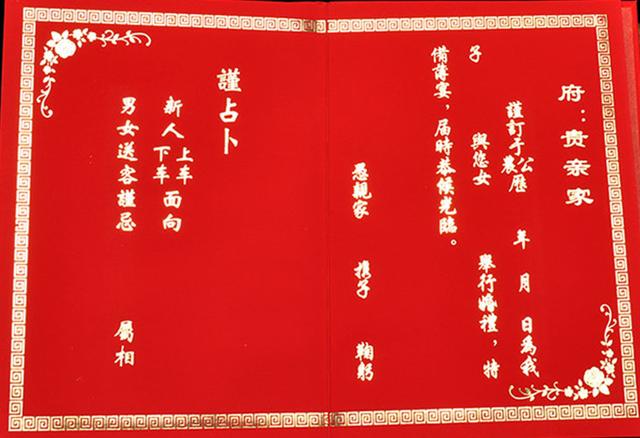 府：贵亲家
謹訂于公農歷 年 月 日為我
子 與您女 舉行婚禮，特
備薄宴，届時恭候光臨。
愚親家 携子 鞠躬
謹占卜
新人上車下車面向
男女送客謹忌 屬相